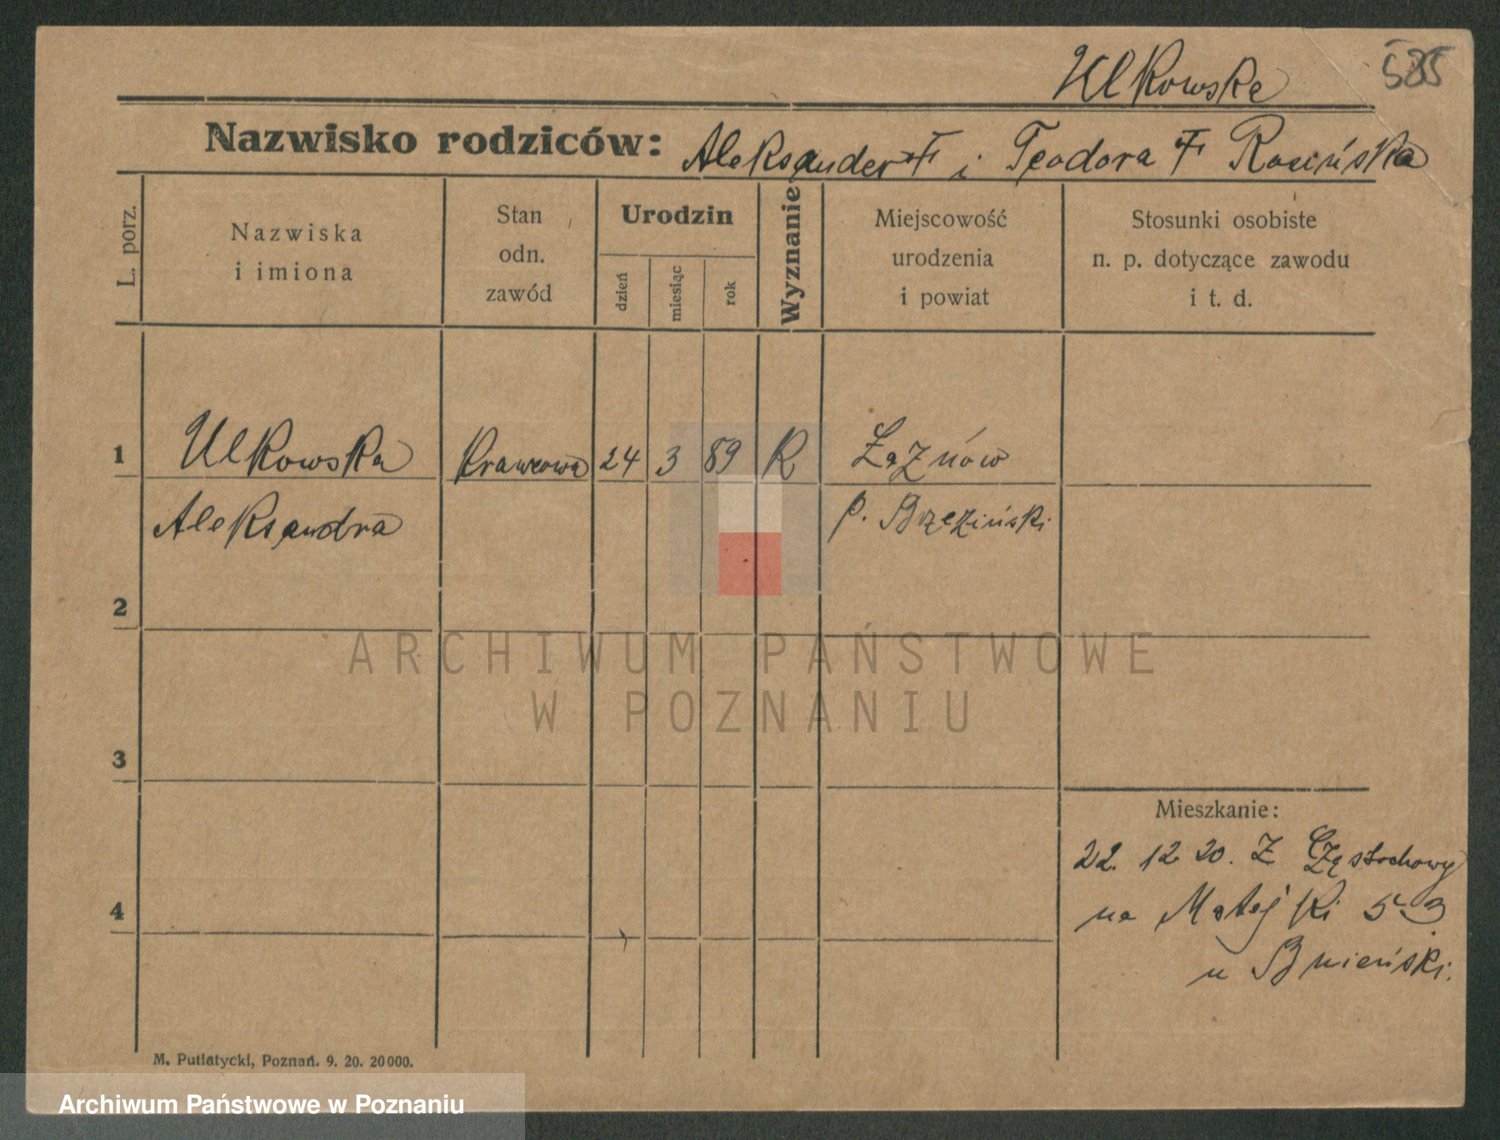 Ulkowska 585
Nazwisko rodziców: Aleksander † i Teodora † Rosińska
L. porz.
Nazwiska
i imiona
Stan
odn.
zawód
Urodzin
dzień
miesiąc
rok
Wyznanie
Miejscowość
urodzenia
i powiat
Stosunki osobiste
n. p. dotyczące zawodu
i t. d.
1 Ulkowska Krawcowa 24 3 89 K Łaznów
Aleksandra p. Brzeziński
2
ARCHIWUM PAŃSTWOWE
W POZNANIU
3
Mieszkanie:
22. 12 20. Z Częstochowy
4 na Matejki 53
u Bnieński.
M. Putiatycki, Poznań. 9. 20. 20000.
Archiwum Państwowe w Poznaniu